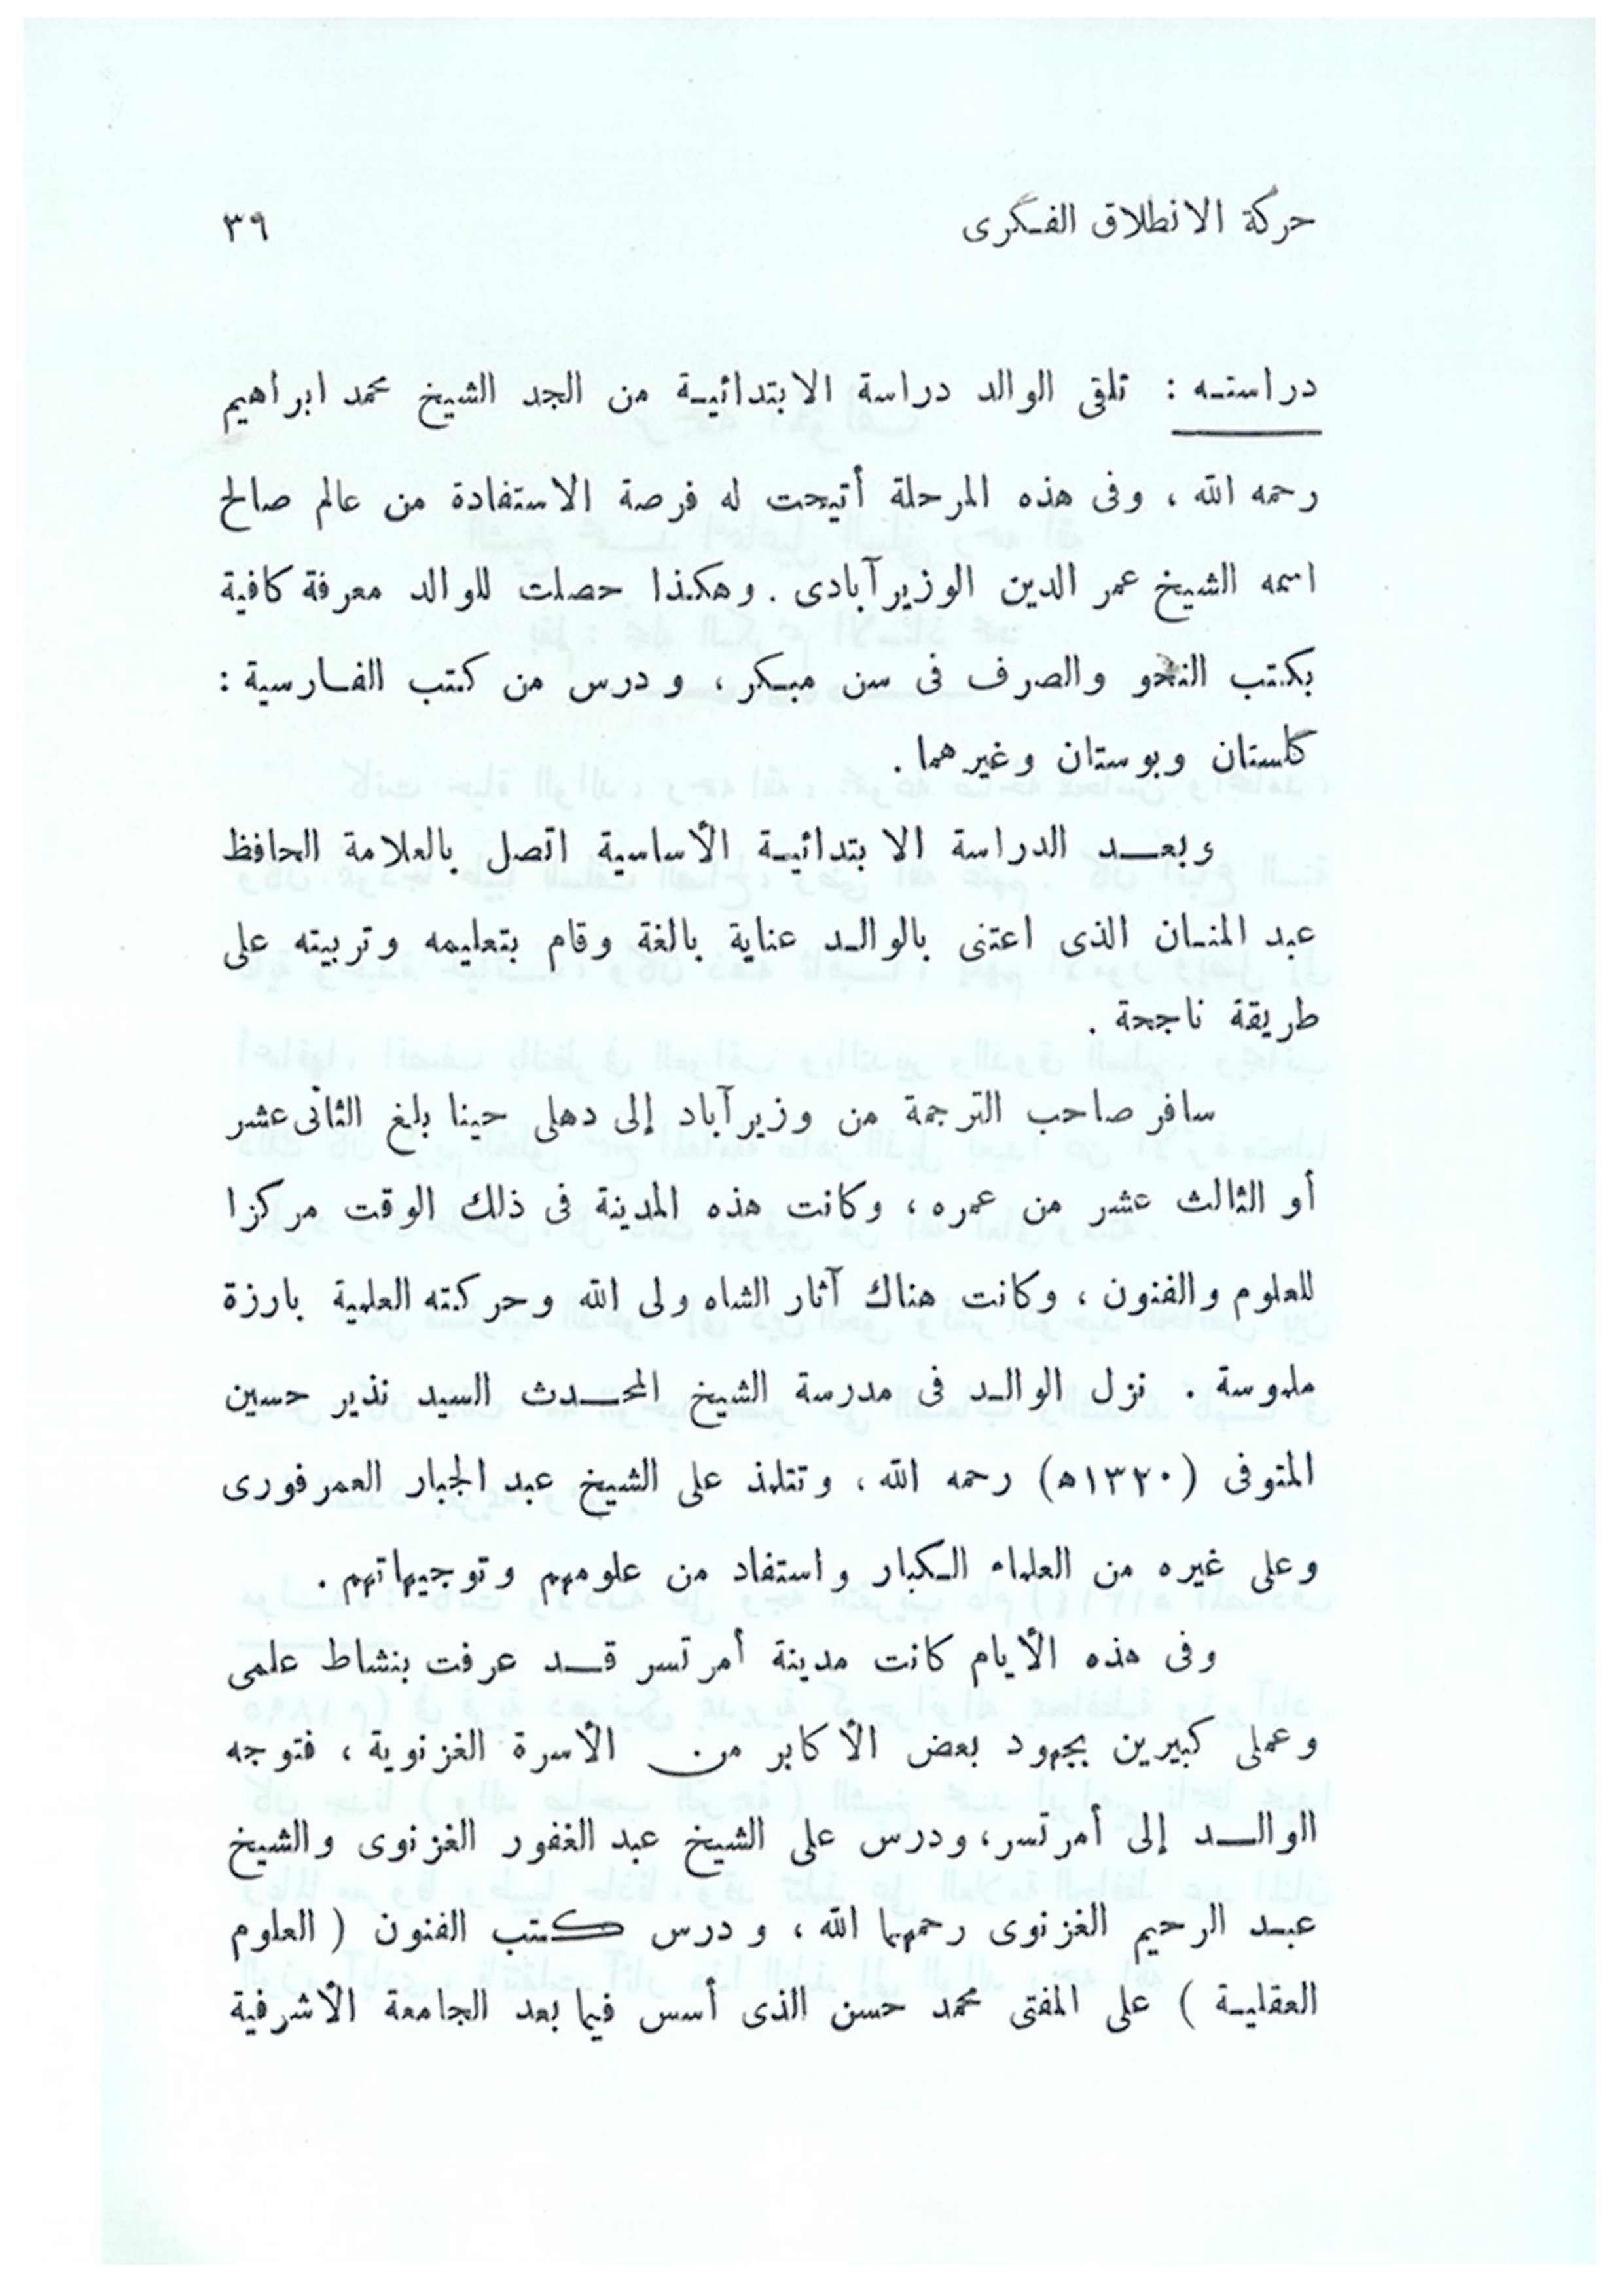 حركة الانطلاق الفكرى ٣٩
دراسته : تلقى الوالد دراسة الابتدائية من الجد الشيخ محمد ابراهيم
رحمه الله ، وفى هذه المرحلة أتيحت له فرصة الاستفادة من عالم صالح
اسمه الشيخ عمر الدين الوزيرآبادى . وهكذا حصلت للوالد معرفة كافية
بكتب النحو والصرف فى سن مبكر ، ودرس من كتب الفارسية :
گلستان وبوستان وغيرهما .
وبعد الدراسة الابتدائية الأساسية اتصل بالعلامة الحافظ
عبد المنان الذى اعتنى بالوالد عناية بالغة وقام بتعليمه وتربيته على
طريقة ناجحة .
سافر صاحب الترجمة من وزيرآباد إلى دهلى حينا بلغ الثانى عشر
أو الثالث عشر من عمره ، وكانت هذه المدينة فى ذلك الوقت مركزا
للعلوم والفنون ، وكانت هناك آثار الشاه ولى الله وحركته العلمية بارزة
ملموسة . نزل الوالد فى مدرسة الشيخ المحدث السيد نذير حسين
المتوفى (١٣٢٠ه) رحمه الله ، وتتلمذ على الشيخ عبد الجبار العمرفورى
وعلى غيره من العلماء الكبار واستفاد من علومهم وتوجيهاتهم .
وفى هذه الأيام كانت مدينة أمرتسر قد عرفت بنشاط علمى
وعملى كبيرين بجهود بعض الأكابر من الأسرة الغزنوية ، فتوجه
الوالد إلى أمرتسر ، ودرس على الشيخ عبد الغفور الغزنوى والشيخ
عبد الرحيم الغزنوى رحمهما الله ، ودرس كتب الفنون ( العلوم
العقلية ) على المفتى محمد حسن الذى أسس فيما بعد الجامعة الأشرفية